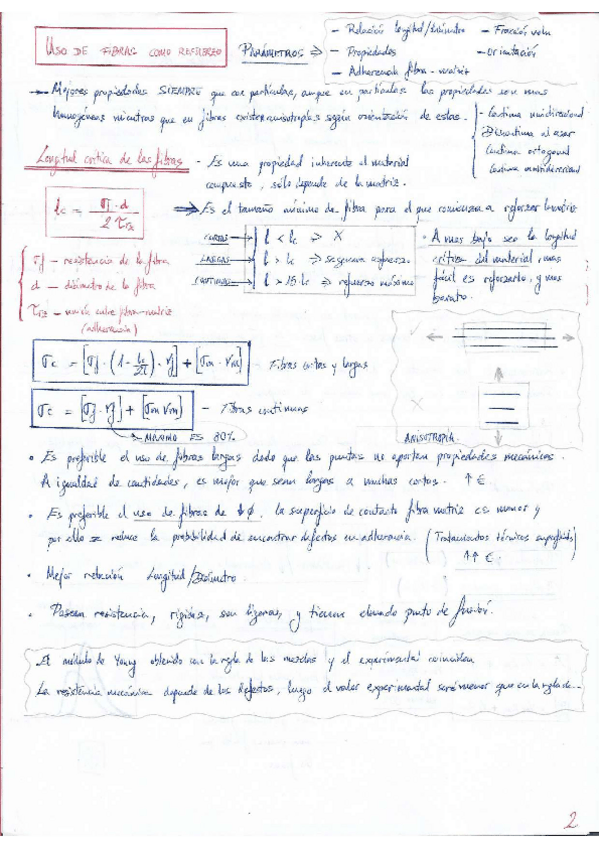 USO DE FIBRAS COMO REFUERZO
PARÁMETROS ⇒
- Relación longitud/diámetro
- Propiedades
- Adherencia fibra-matriz
- Fracción volu
- Orientación
→ Mejores propiedades SIEMPRE que con partículas, aunque en partículas las propiedades son mas
homogéneas mientras que en fibras existen anisotropías según orientación de estas.
- Contínua unidireccional
Discontinua al azar
Contínua ortogonal
Contínua multidireccional
Longitud crítica de las fibras
- Es una propiedad inherente al material
compuesto, sólo depende de la matriz.
lc = σf · d / 2 τfx
⇒ Es el tamaño mínimo de fibra para el que comienza a reforzar la matriz
CORTAS → l < lc ⇒ X
LARGAS → l > lc ⇒ refuerzo
CONTINUAS → l > 15·lc ⇒ refuerzo máximo
• A mas bajo sea la longitud
crítica del material, mas
fácil es reforzarlo, y mas
barato.
σf - resistencia de la fibra
d - diámetro de la fibra
- unión entre fibra-matriz
(adherencia)
σc = [σf · (1 - lc/2l) · Vf] + [σm · Vm]
Fibras cortas y largas
σc = [σf · Vf] + [σm Vm] - Fibras continuas
MÁXIMO ES 80%
ANISOTROPÍA
• Es preferible el uso de fibras largas dado que las puntas no aportan propiedades mecánicas.
A igualdad de cantidades, es mejor que sean largas a muchas cortas. ↑ €
• Es preferible el uso de fibras de ↓ φ, la superficie de contacto fibra matriz es menor y
por ello se reduce la probabilidad de encontrar defectos en adherencia. (Tratamientos térmicos superficiales)
↑↑ €
• Mejor relación Longitud/Diámetro.
• Poseen resistencia, rigidez, son ligeras, y tienen elevado punto de fusión.
El módulo de Young obtenido con la regla de las mezclas y el experimental coinciden.
La resistencia mecánica depende de los defectos, luego el valor experimental será menor que en la regla de...
2